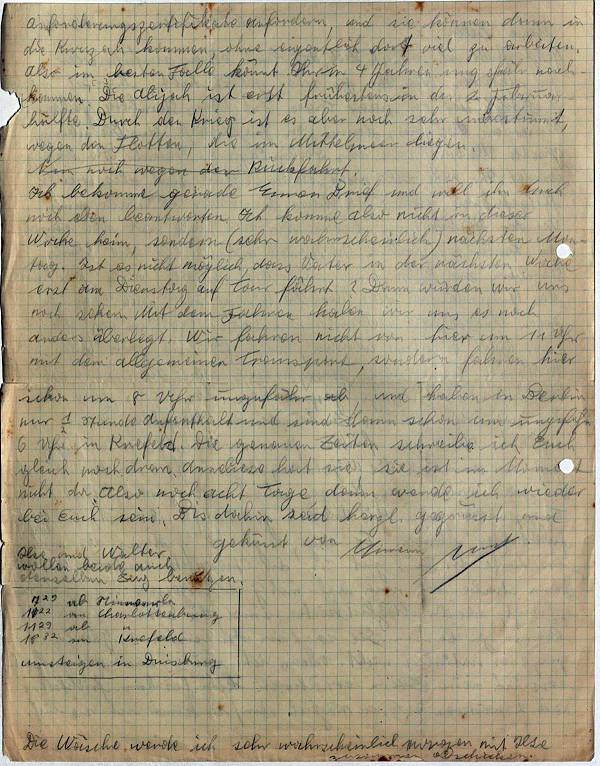 Anforderungszertifikate anfordern, und sie können dann in
die Kwuzah kommen, ohne eigentlich dort viel zu arbeiten.
Also im besten Falle könnt Ihr in 4 Jahren ung spät nach-
kommen. Die Alijah ist erst frühestens in der 2. Februar
hälfte. Durch den Krieg ist es aber noch sehr unbestimmt,
wegen den Flotten, die im Mittelmeer liegen.
noch wegen der Rückfahrt.
Ich bekomme gerade Euren Brief und will ihn Euch
noch eben beantworten. Ich komme also nicht in dieser
Woche heim, sondern (sehr wahrscheinlich) nächsten Mon-
tag. Ist es nicht möglich, dass Vater in der nächsten Woche
erst am Dienstag auf Tour fährt? Dann würden wir uns
noch sehen. Mit dem Fahren haben wir uns es noch
anders überlegt. Wir fahren nicht von hier um 11 Uhr
mit dem allgemeinen Transport, sondern fahren hier
schon um 8 Uhr ungefähr ab, und haben in Berlin
nur 1 Stunde Aufenthalt und sind dann schon um ungefähr
6 Uhr in Krefeld. Die genauen Zeiten schreibe ich Euch
gleich noch dran. Anneliese hat sie, sie ist im Moment
nicht da. Also noch acht Tage, dann werde ich wieder
bei Euch sein. Bis dahin seid herzl. gegrüsst und
geküsst von Eurem
Ilse und Walter
wollen beide auch
denselben Zug benützen.
7 29 ab
an Charlottenburg
11 29 ab "
18 32 an Krefeld
umsteigen in Duisburg
Die Wäsche werde ich sehr wahrscheinlich morgen mit Ilse
zusammen abschicken.